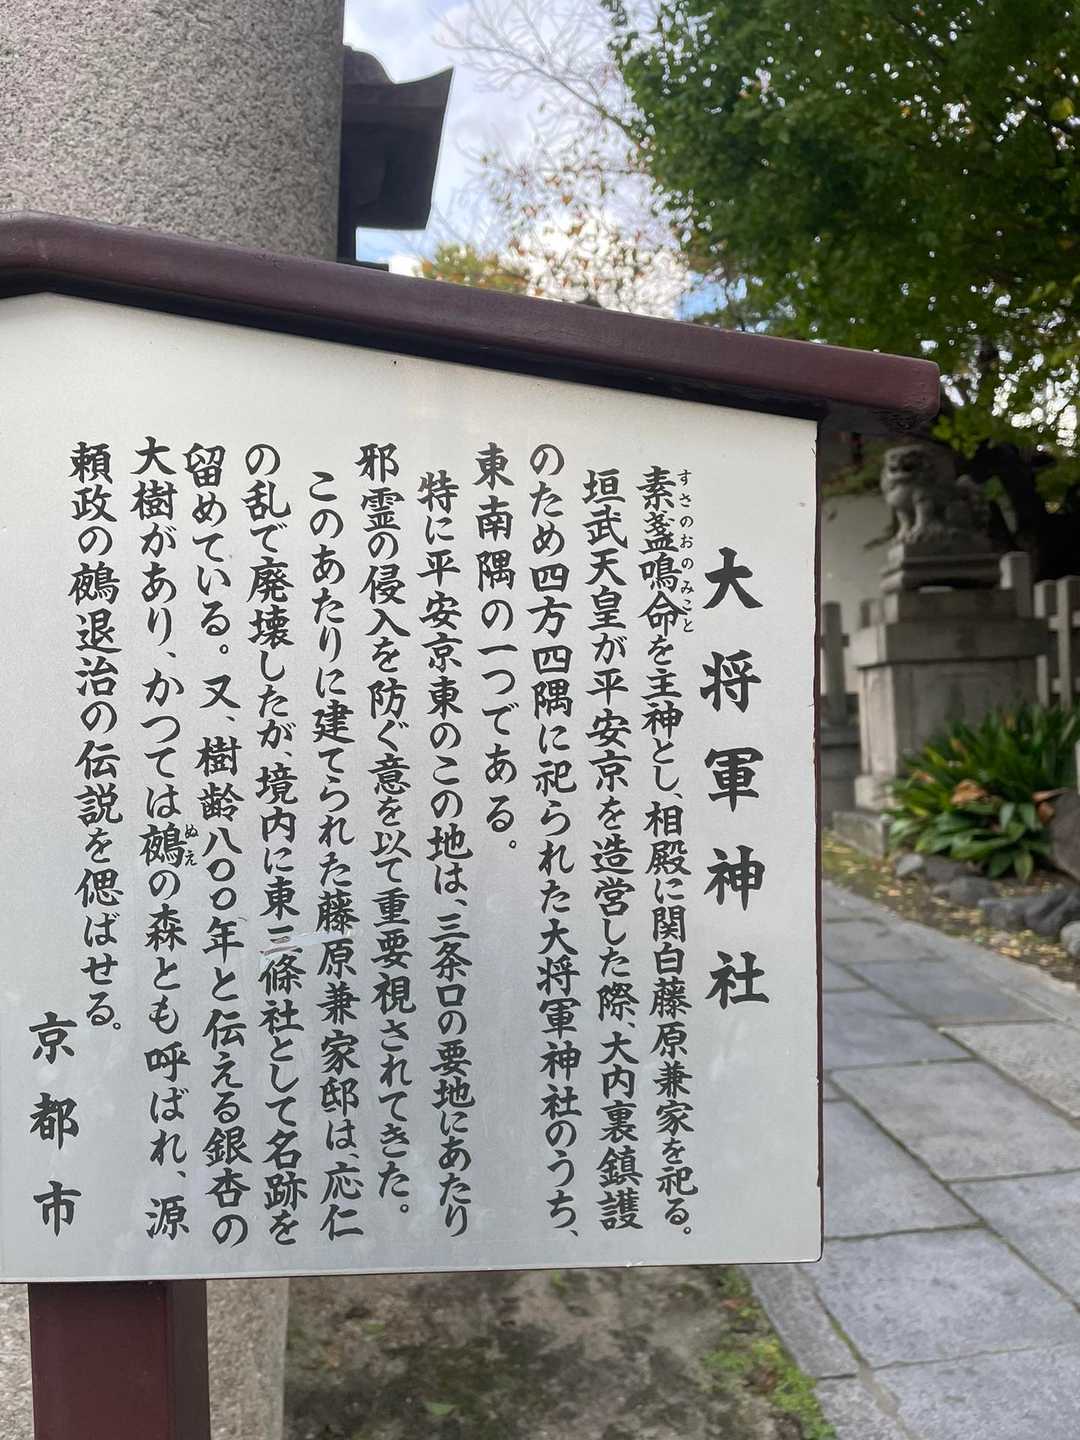 大将軍神社
素盞鳴命を主神とし、相殿に関白藤原兼家を祀る。
すさのおのみこと
垣武天皇が平安京を造営した際、大内裏鎮護
のため四方四隅に祀られた大将軍神社のうち、
東南隅の一つである。
特に平安京東のこの地は、三条口の要地にあたり
邪霊の侵入を防ぐ意を以て重要視されてきた。
このあたりに建てられた藤原兼家邸は、応仁
の乱で廃壊したが、境内に東三條社として名跡を
留めている。又、樹齢八〇〇年と伝える銀杏の
大樹があり、かつては鵺の森とも呼ばれ、源
ぬえ
頼政の鵺退治の伝説を偲ばせる。
京都市